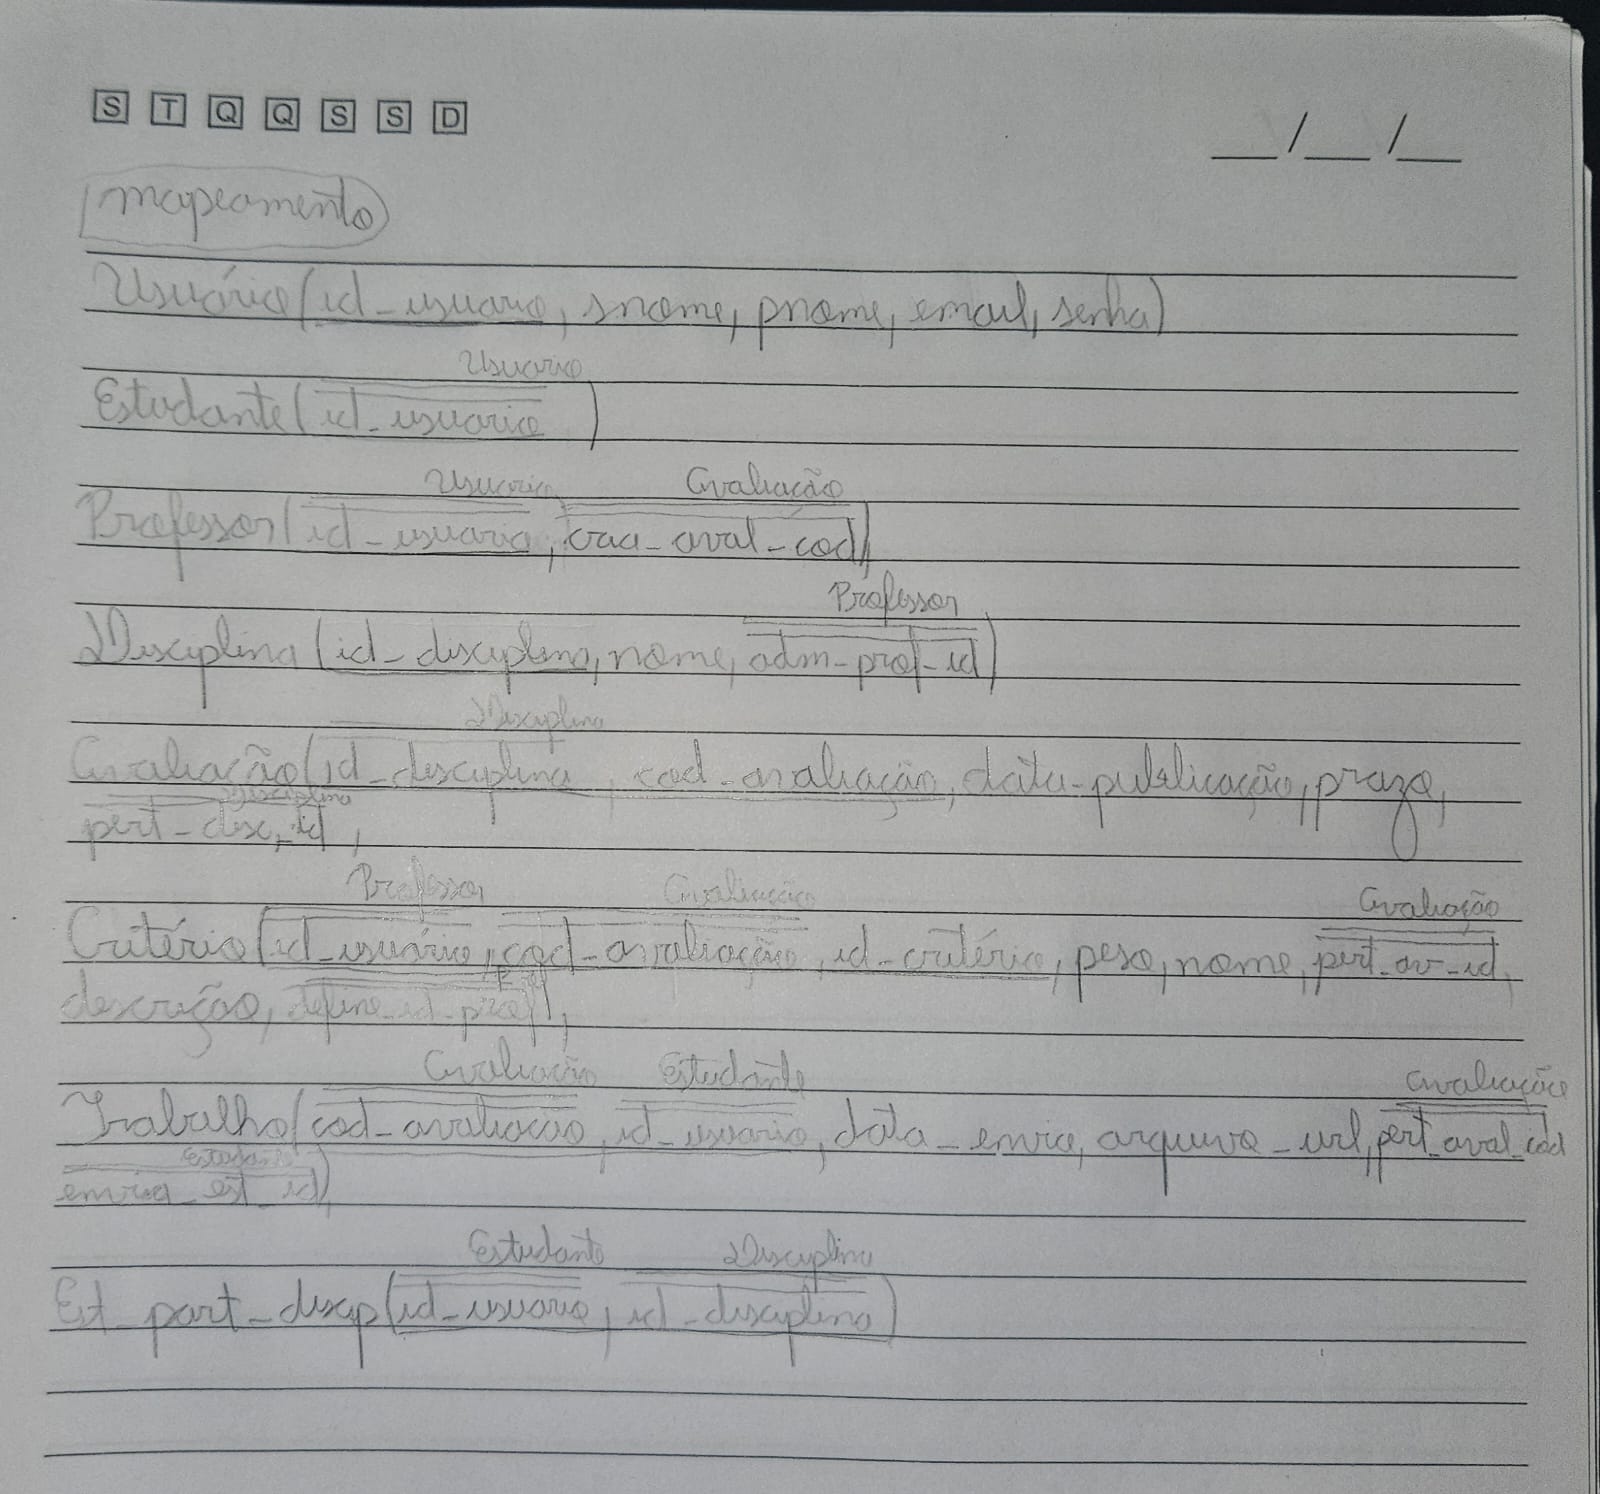 S T Q Q S S D
__/__/__
mapeamento
Usuário(id_usuario, snome, pnome, email, senha)
Usuario
Estudante(id_usuario)
Usuario Avaliação
Professor(id_usuario, cria_aval_cod)
Professor
Disciplina(id_disciplina, nome, adm_prof_id)
Disciplina
Avaliação(id_disciplina, cod_avaliação, data_publicação, prazo,
Disciplina
pert_disc_id,
Professor Avaliação Avaliação
Critério(id_usuário, cod_avaliação, id_critério, peso, nome, pert_av_id,
descrição, define_id_prof),
Avaliação Estudante Avaliação
Trabalho(cod_avaliacao, id_usuario, data_envio, arquivo_url, pert_aval_cod
Estudante
envia_est_id)
Estudante Disciplina
Est_part_discip(id_usuario, id_disciplina)